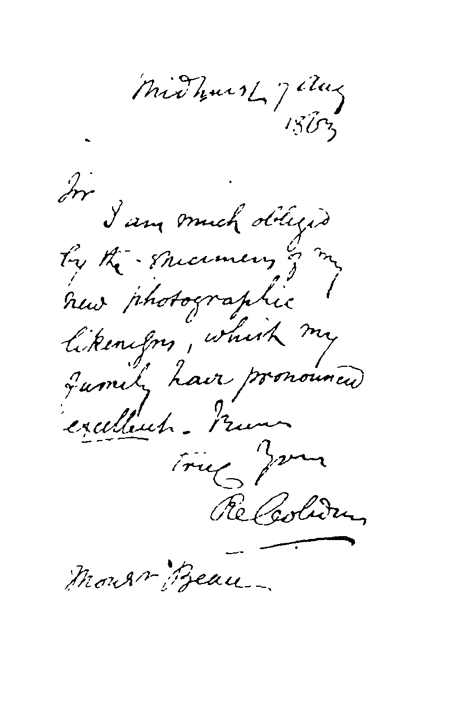 Midhurst 7 Aug
1863
Sir
I am much obliged
by the specimens of my
new photographic
likenesses, which my
family have pronounced
excellent.
truly Yours
R Cobden
Monsr Beau